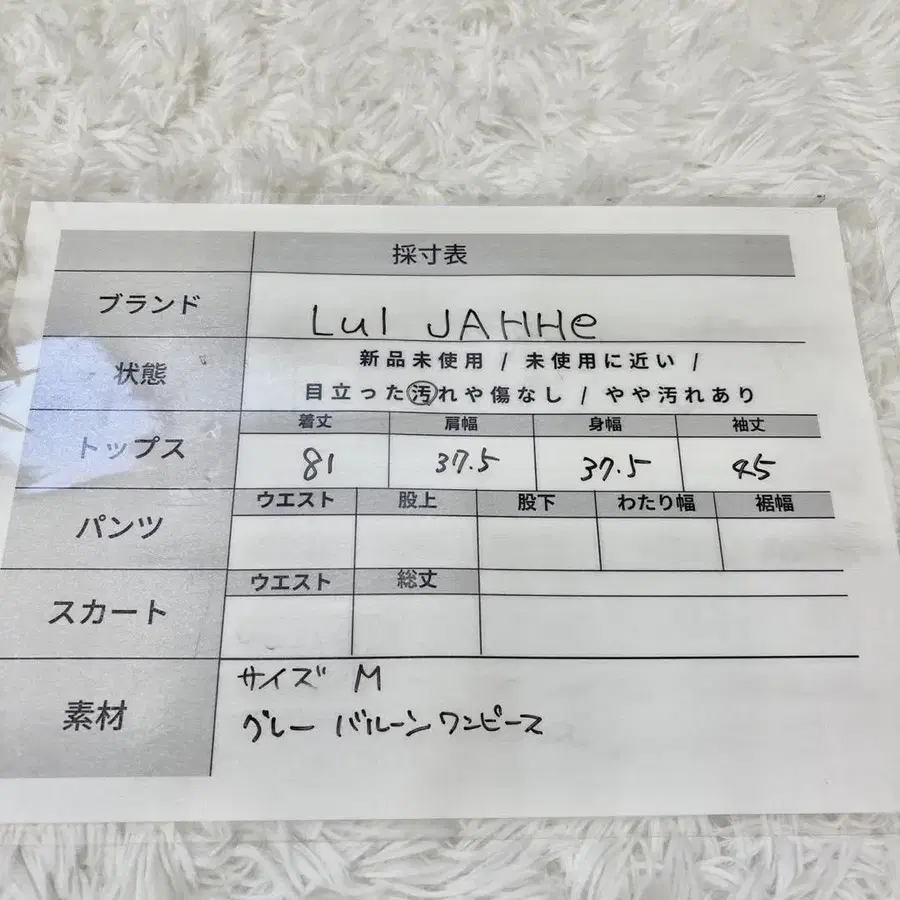 採寸表
ブランド Lul JAHHe
状態 新品未使用 / 未使用に近い /
目立った汚れや傷なし / やや汚れあり
トップス 着丈 肩幅 身幅 袖丈
81 37.5 37.5 45
パンツ ウエスト 股上 股下 わたり幅 裾幅
スカート ウエスト 総丈
素材 サイズ M
グレー バルーンワンピース